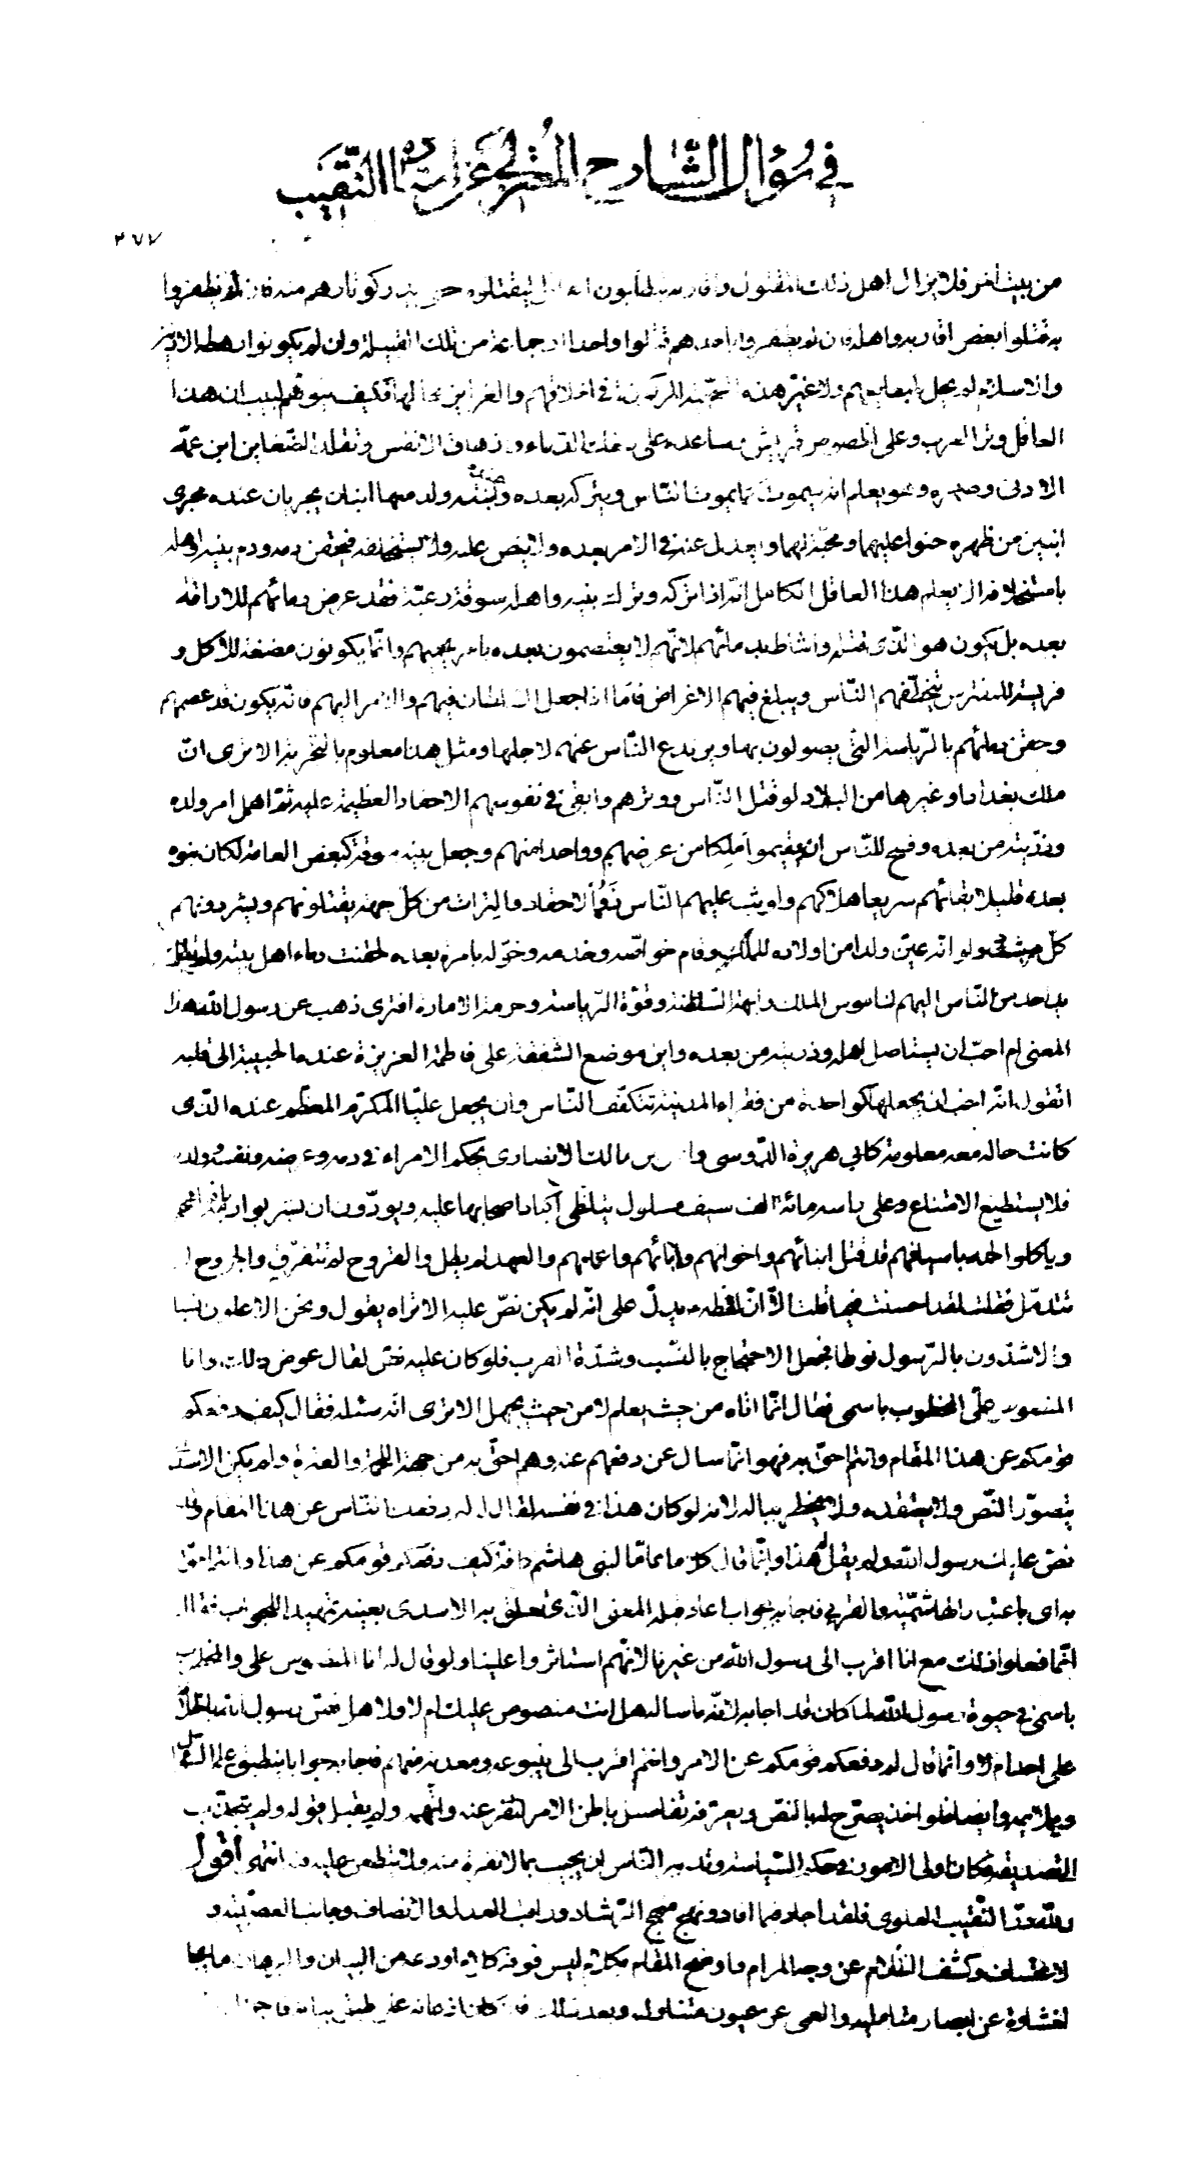 في سؤال الشارح المعتزلي عن استاده النقيب
٢٧٧
من بيت آخر فلا يزال اهل ذلك المقتول واقاربه يتطلبون القاتل ليقتلوه حتى يدركوا ثارهم منه فان لم يظفروا
به قتلوا بعض اقاربه واهله فان لم يظفروا باحدهم قتلوا واحدا او جماعة من تلك القبيلة وان لم يكونوا رهطه الادنين
والاسلام لم يحل طبايعهم ولا غير هذه السجية المركوزة في اخلاقهم والغرايز بحالها فكيف يتوهم لبيب ان هذا
العاقل وتر العرب وعلى الخصوص قريش وساعده على سفك الدماء وازهاق الانفس وتقلد الضغاين ابن عمه
الادنى وصهره وهو يعلم انه سيموت كما يموت الناس ويتركه بعده وعنده ابنته وله منها ابنان يجريان عنده مجرى
ابنين من ظهره حنوا عليهما ومحبة لهما ويعدل عنه في الامر بعده ولا ينص عليه ولا يستخلفه فيحقن دمه ودم بنيه واهله
باستخلافه الا يعلم هذا العاقل الكامل انه اذا تركه وترك بنيه واهله سوقة ورعية فقد عرض دمائهم للاراقة
بعده بل يكون هو الذي قتله واشاط بدمائهم لانهم لا يعتصمون بعده بامر يحميهم وانما يكونون مضغة للاكل و
فريسة للمفترس يتخطفهم الناس ويبلغ فيهم الاغراض فاما اذا جعل السلطان فيهم والامر اليهم فانه يكون قد عصمهم
وحقن دمائهم بالرياسة التي يصولون بها ويرتدع الناس عنهم لاجلها ومثل هذا معلوم بالتجربة الا ترى ان
ملك بغداد او غيرها من البلاد لو قتل الناس ووترهم وابقى في نفوسهم الاحقاد العظيمة عليه ثم اهمل امر ولده
وذريته من بعده وفسح للناس ان يقيموا ملكا من عرضهم وواحدا منهم وجعل بنيه سوقة كبعض العامة لكان بنوه
بعده قليلا بقائهم سريعا هلاكهم ولوثب عليهم الناس ذووا الاحقاد والترات من كل جهة يقتلونهم ويشردونهم
كل مشرد ولو انه عين ولدا من اولاده للملك وقام خواصه وخدمه وخوله بامره بعده لحقنت دماء اهل بيته ولم تطل
يد احد من الناس اليهم لناموس الملك وابهة السلطنة وقوة الرياسة وحرمة الامارة افترى ذهب عن رسول الله هذا
المعنى ام احب ان يستاصل اهله وذريته من بعده واين موضع الشفقة على فاطمة العزيزة عنده الحبيبة الى قلبه
اتقول انه احب ان يجعلها كواحدة من فقراء المدينة تتكفف الناس وان يجعل عليا المكرم المعظم عنده الذي
كانت حاله معه معلومة كابي هريرة الدوسي وانس بن مالك الانصاري يحكم الامراء في دمه وعرضه ونفسه وولده
فلا يستطيع الامتناع وعلى راسه مائة الف سيف مسلول تتلظى اكباد اصحابها عليه ويودون ان يشربوا دمه
وياكلوا لحمه باسيافهم قد قتل ابنائهم واخوانهم وآبائهم واعمامهم والعهد لم يطل والقروح لم تتقرف والجروح لم
تندمل فقلت لقد احسنت فيما قلت الا ان لفظه يدل على انه لم يكن نص عليه الا تراه يقول ونحن الاعلون نسبا
والاشدون بالرسول نوطا فجعل الاحتجاج بالنسب وشدة القرب فلو كان عليه نص لقال عوض ذلك وانا
المنصوص علي المخطوب باسمي فقال انما اتاه من حيث يعلم لا من حيث يجهل الا ترى انه سئله فقال كيف دفعكم
قومكم عن هذا المقام وانتم احق به فهو انما سال عن دفعهم عنه وهم احق به من جهة اللحمة والعترة ولم يكن الاسدي
يتصور النص ولا يعتقده ولا يخطر بباله لانه لو كان هذا في نفسه لقال له لم دفعك الناس عن هذا المقام وقد
نص عليك رسول الله ولم يقل له هذا وانما قال كلاما عاما لبني هاشم كافة كيف دفعكم قومكم عن هذا وانتم احق
به اي باعتبار الهاشمية والقربى فاجابه بجواب اعاد قبله المعنى الذي تعلق به الاسدي بعينه تمهيدا للجواب فقال
انما فعلوا ذلك مع انا اقرب الى رسول الله من غيرنا لانهم استاثروا علينا ولو قال له انا المنصوص علي والمخطوب
باسمي في حيوة رسول الله لما كان قد اجابه لانه ما ساله هل انت منصوص عليك ام لا ولا هل نص رسول الله بالخلافة
على احد ام لا وانما قال لم دفعكم قومكم عن الامر وانتم اقرب الى ينبوعه ومعدنه منهم فاجابه جوابا ينطبق على السؤال
ويلايمه وايضا فلو اخذ يصرح له بالنص ويعرفه تفاصيل باطن الامر لنفر عنه واتهمه ولم يقبل قوله ولم ينجذب
الى تصديقه فكان اولى الامور في حكم السياسة وتدبير الناس ان يجيب بما لا نفرة منه ولا مطعن عليه فيه انتهى اقول
ولله در النقيب العلوي فلقد اجاد فيما افاد ونهج منهج الرشاد وراقب العدل والانصاف وجانب العصبية و
الاعتساف وكشف الظلام عن وجه المرام واوضح المقام بكلام ليس فوقه كلام اودعه من البيان والبرهان ما يجلو
الغشاوة عن ابصار متامليه والعمى عن عيون متناوليه وبعد ذلك